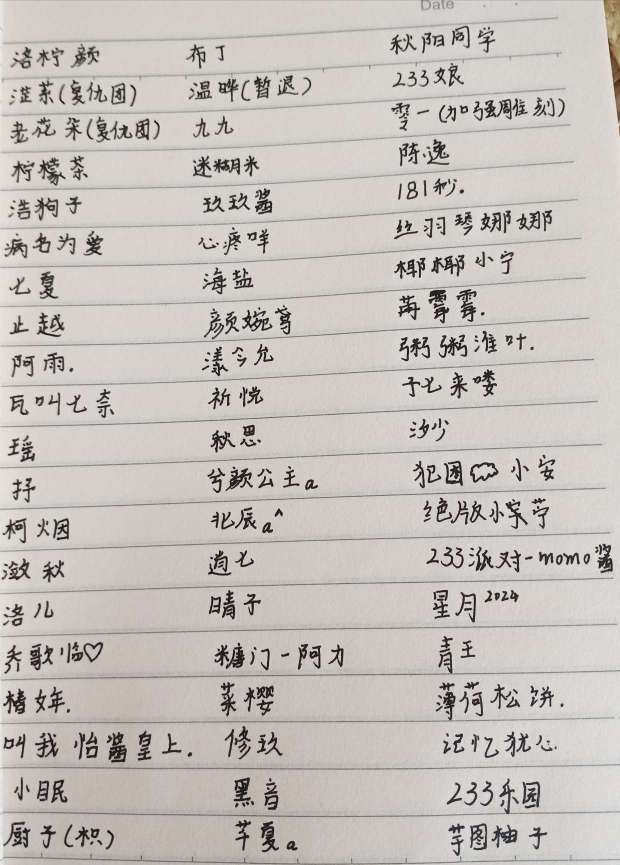 Date
洛柠颜 布丁 秋阳同学
韭菜(复仇团) 温晔(暂退) 233娘
老花朵(复仇团) 九九 雯一(加强周佳刻)
柠檬茶 迷糊米 陈逸
浩狗子 玖玖酱 181秒。
病名为爱 心疼咩 丝羽琴娜娜
七夏 海盐 椰椰小宁
止越 颜婉尊 苒霄霄.
阿雨. 漾今允 粥粥淮叶.
瓦叫七奈 祈悦 于七来喽
瑶 秋思 沙少
抒 兮颜公主a 犯困 小安
柯烟 北辰a^ 绝版小宋苧
潋秋 逍七 233派对-momo酱
洛儿 晴子 星月2024
乔歌临♡ 糖门-阿力 青王
楮年. 菜樱 薄荷松饼.
叫我怡酱皇上. 修玖 记忆犹心
小眠 黑音 233乐园
厨子(枳) 芊夏a 芋圆柚子